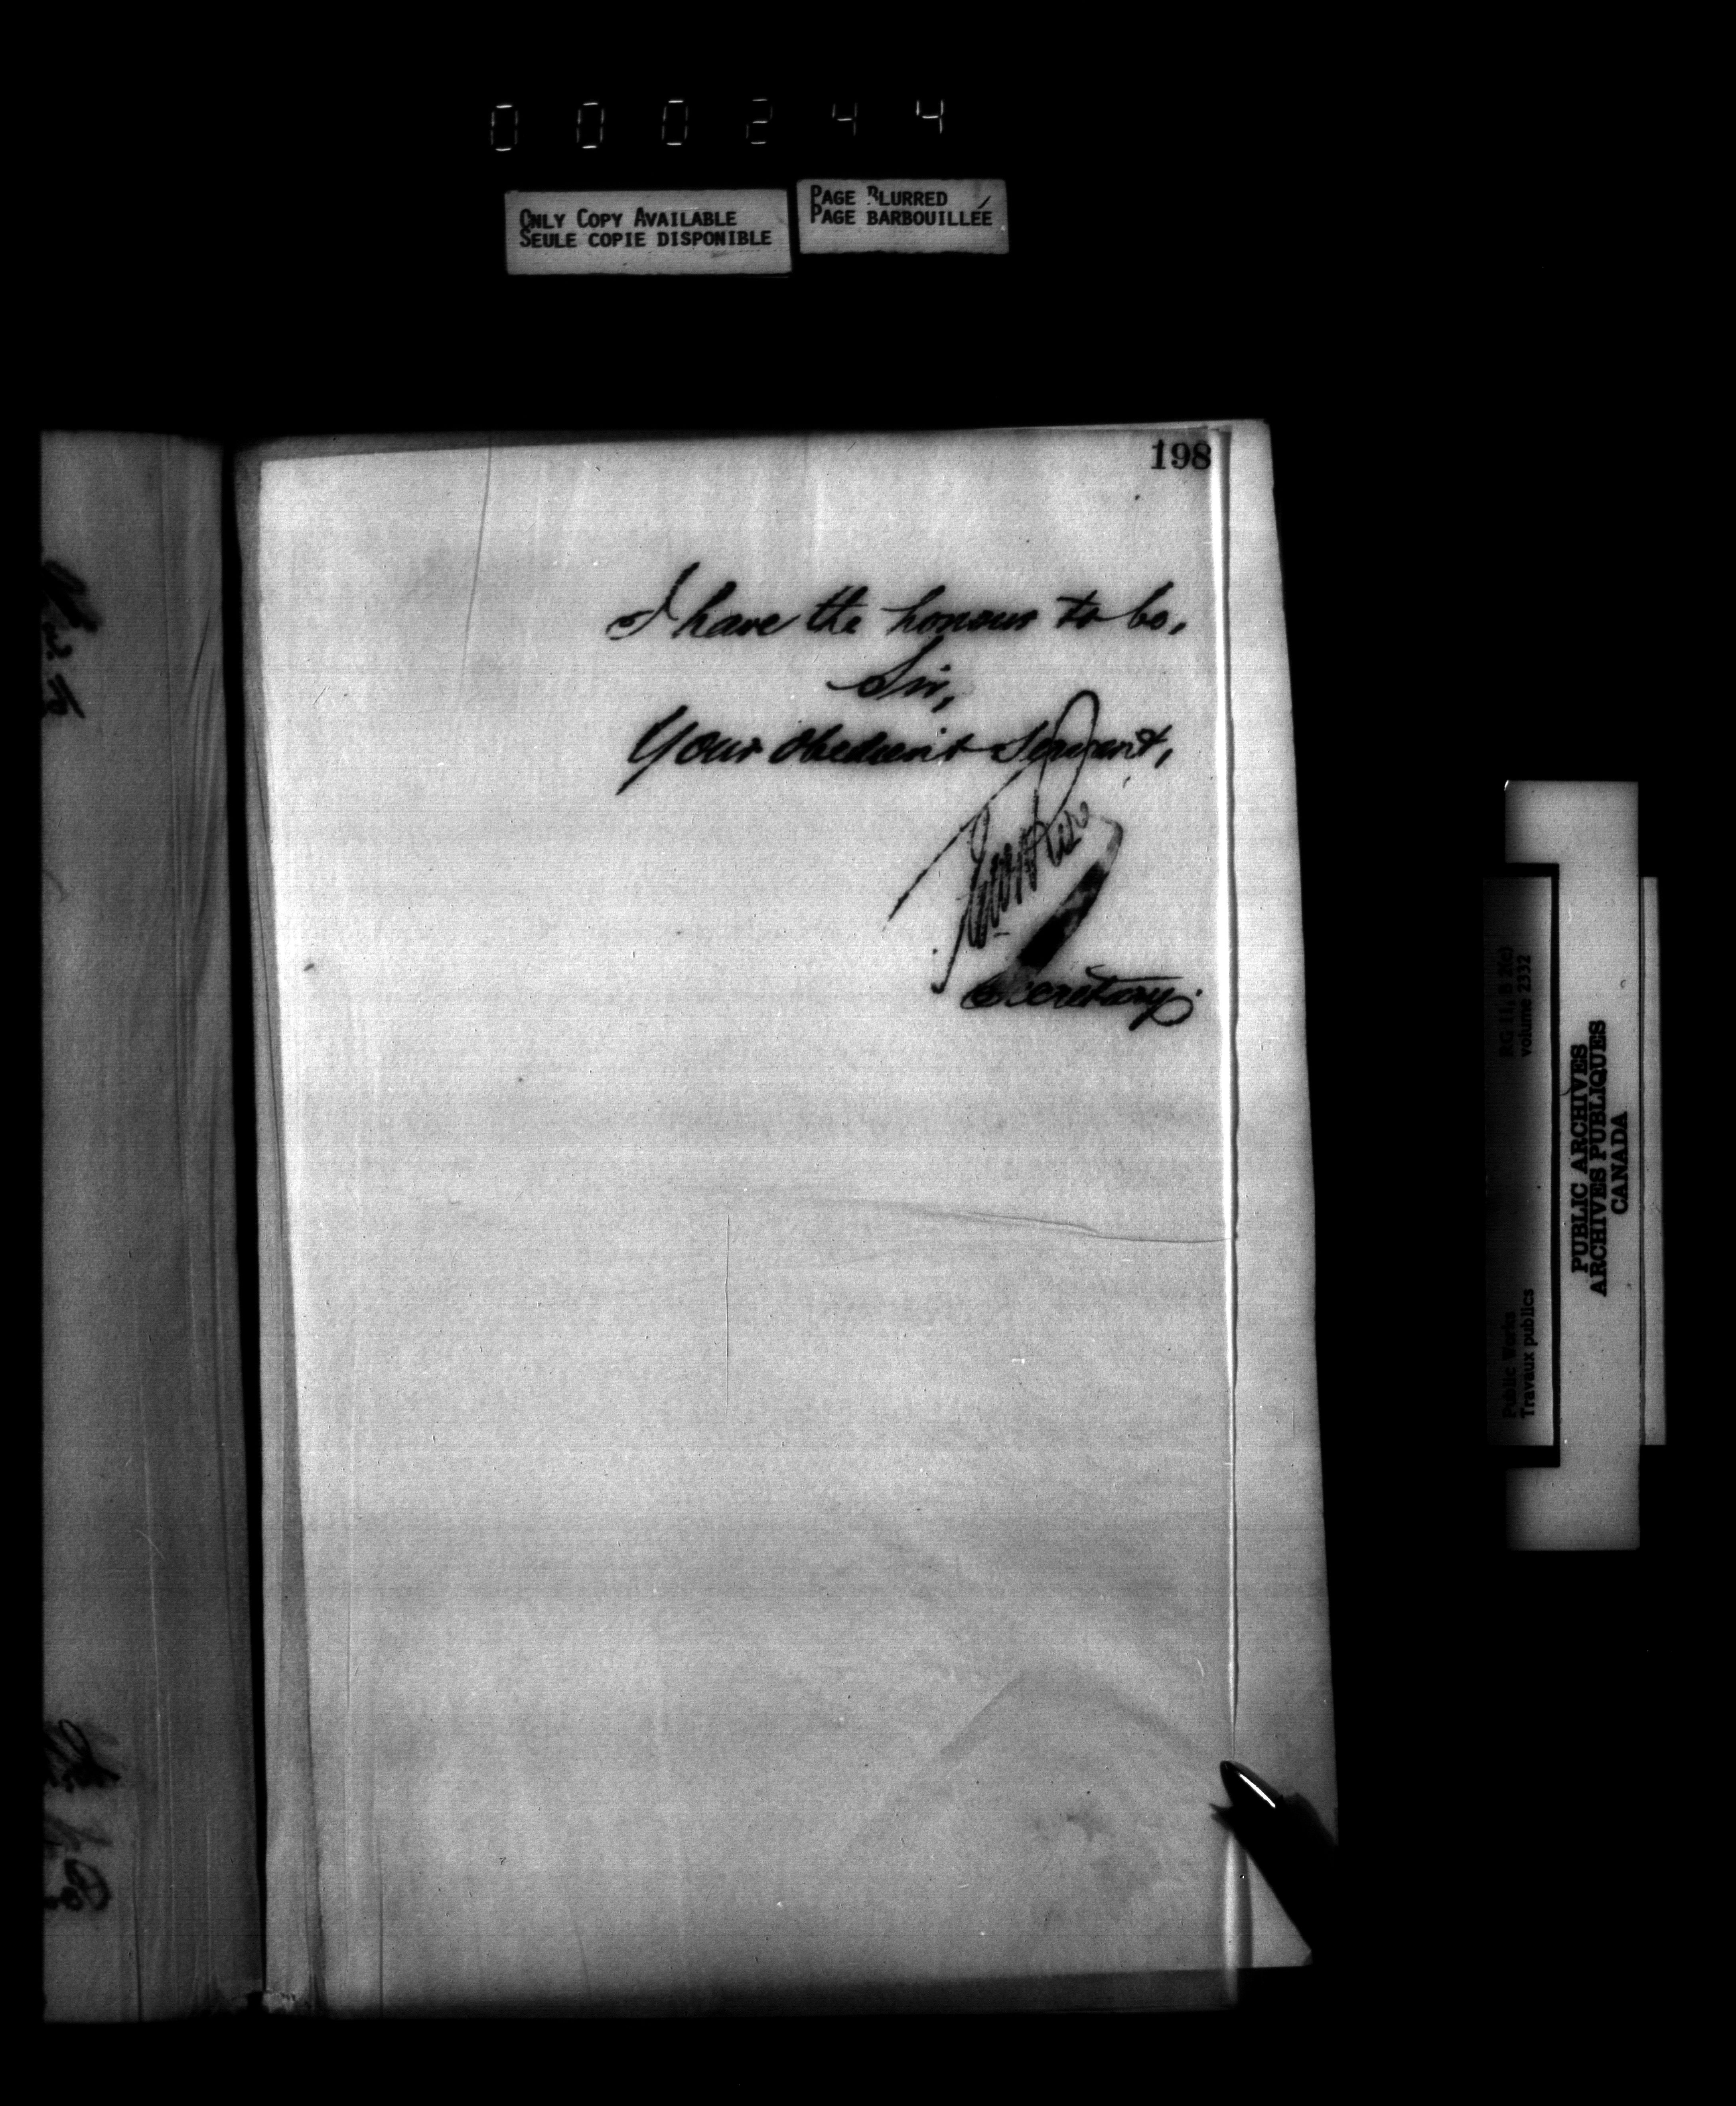 000244
ONLY COPY AVAILABLE
SEULE COPIE DISPONIBLE
PAGE BLURRED
PAGE BARBOUILLÉE
198
I have the honour to be,
Sir,
Your obedient Servant,
Secretary.
RG 11, B 2(c)
volume 2332
Public Works
Travaux publics
PUBLIC ARCHIVES
ARCHIVES PUBLIQUES
CANADA